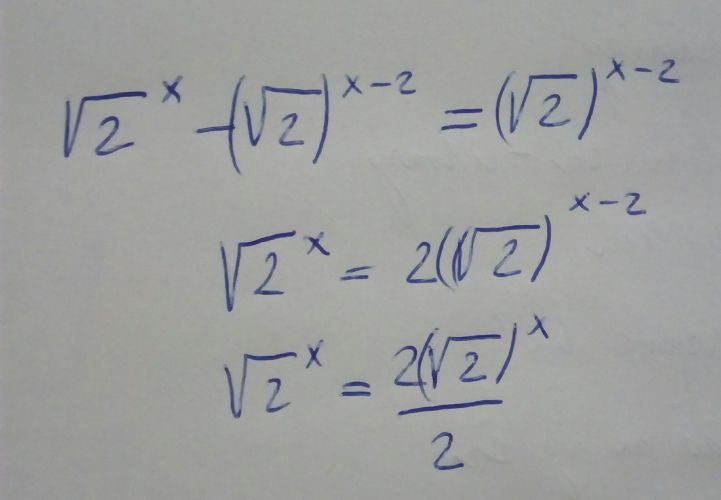 √2^x - (√2)^{x-2} = (√2)^{x-2}
√2^x = 2(√2)^{x-2}
√2^x = \frac{2(√2)^x}{2}